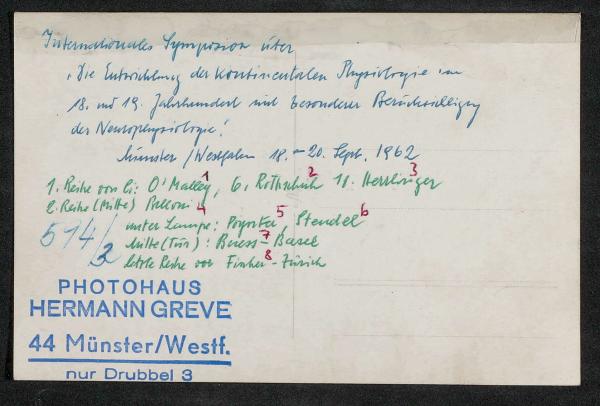 Internationales Symposion über
"Die Entwicklung der kontinentalen Physiologie im
18. und 19. Jahrhundert mit besonderer Berücksichtigung
der Neurophysiologie".
Münster/Westfalen 18. – 20. Sept. 1962
1. Reihe von li: O'Malley, 6. Rothschuh 11. Herrlinger
1 2 3
2. Reihe (Mitte) Belloni 4
unter Lampe: Poynter 5, Steudel 6
Mitte (Tür): Buess - Basel 7
letzte Reihe vor Fischer - Zürich 8
574/2
PHOTOHAUS
HERMANN GREVE
44 Münster/Westf.
nur Drubbel 3